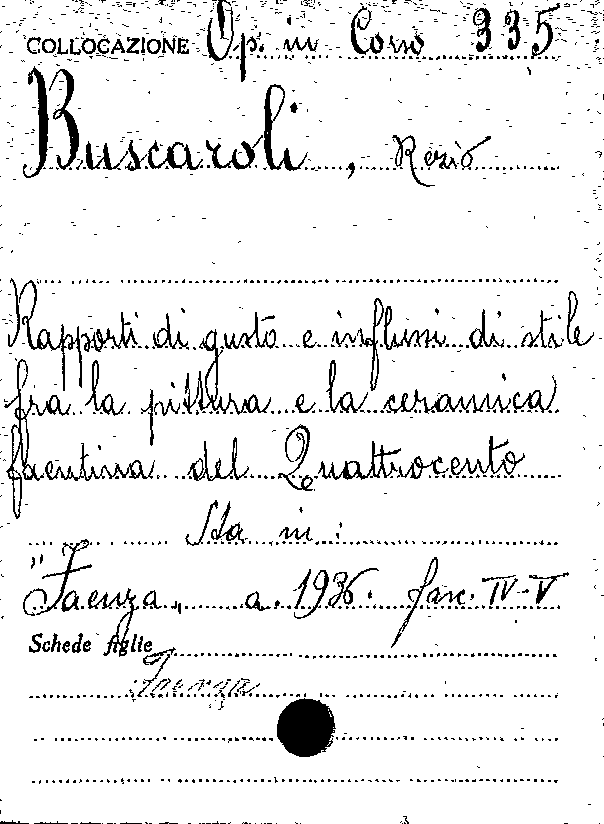 COLLOCAZIONE Op. in Corso 335
Buscaroli, Rezio
Rapporti di gusto e influssi di stile
fra la pittura e la ceramica
faentina del Quattrocento
Sta in:
"Faenza„ a. 1936. fasc. IV-V
Schede figlie
Faenza